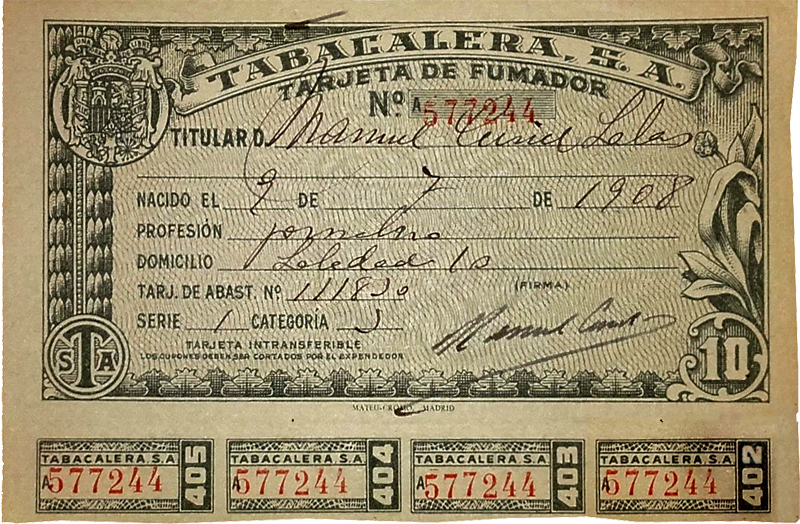 TABACALERA, S. A.
TARJETA DE FUMADOR
Nº A 577244
TITULAR D. Manuel
NACIDO EL 9 DE 7 DE 1908
PROFESIÓN jornalero
DOMICILIO Soledad 10
TARJ. DE ABAST. Nº 111820
(FIRMA)
SERIE 1 CATEGORÍA 3
Manuel
TARJETA INTRANSFERIBLE
LOS CUPONES DEBEN SER CORTADOS POR EL EXPENDEDOR
S T A
10
MATEU-CROMO, MADRID
TABACALERA S.A. A 577244 405
TABACALERA S.A. A 577244 404
TABACALERA S.A. A 577244 403
TABACALERA S.A. A 577244 402